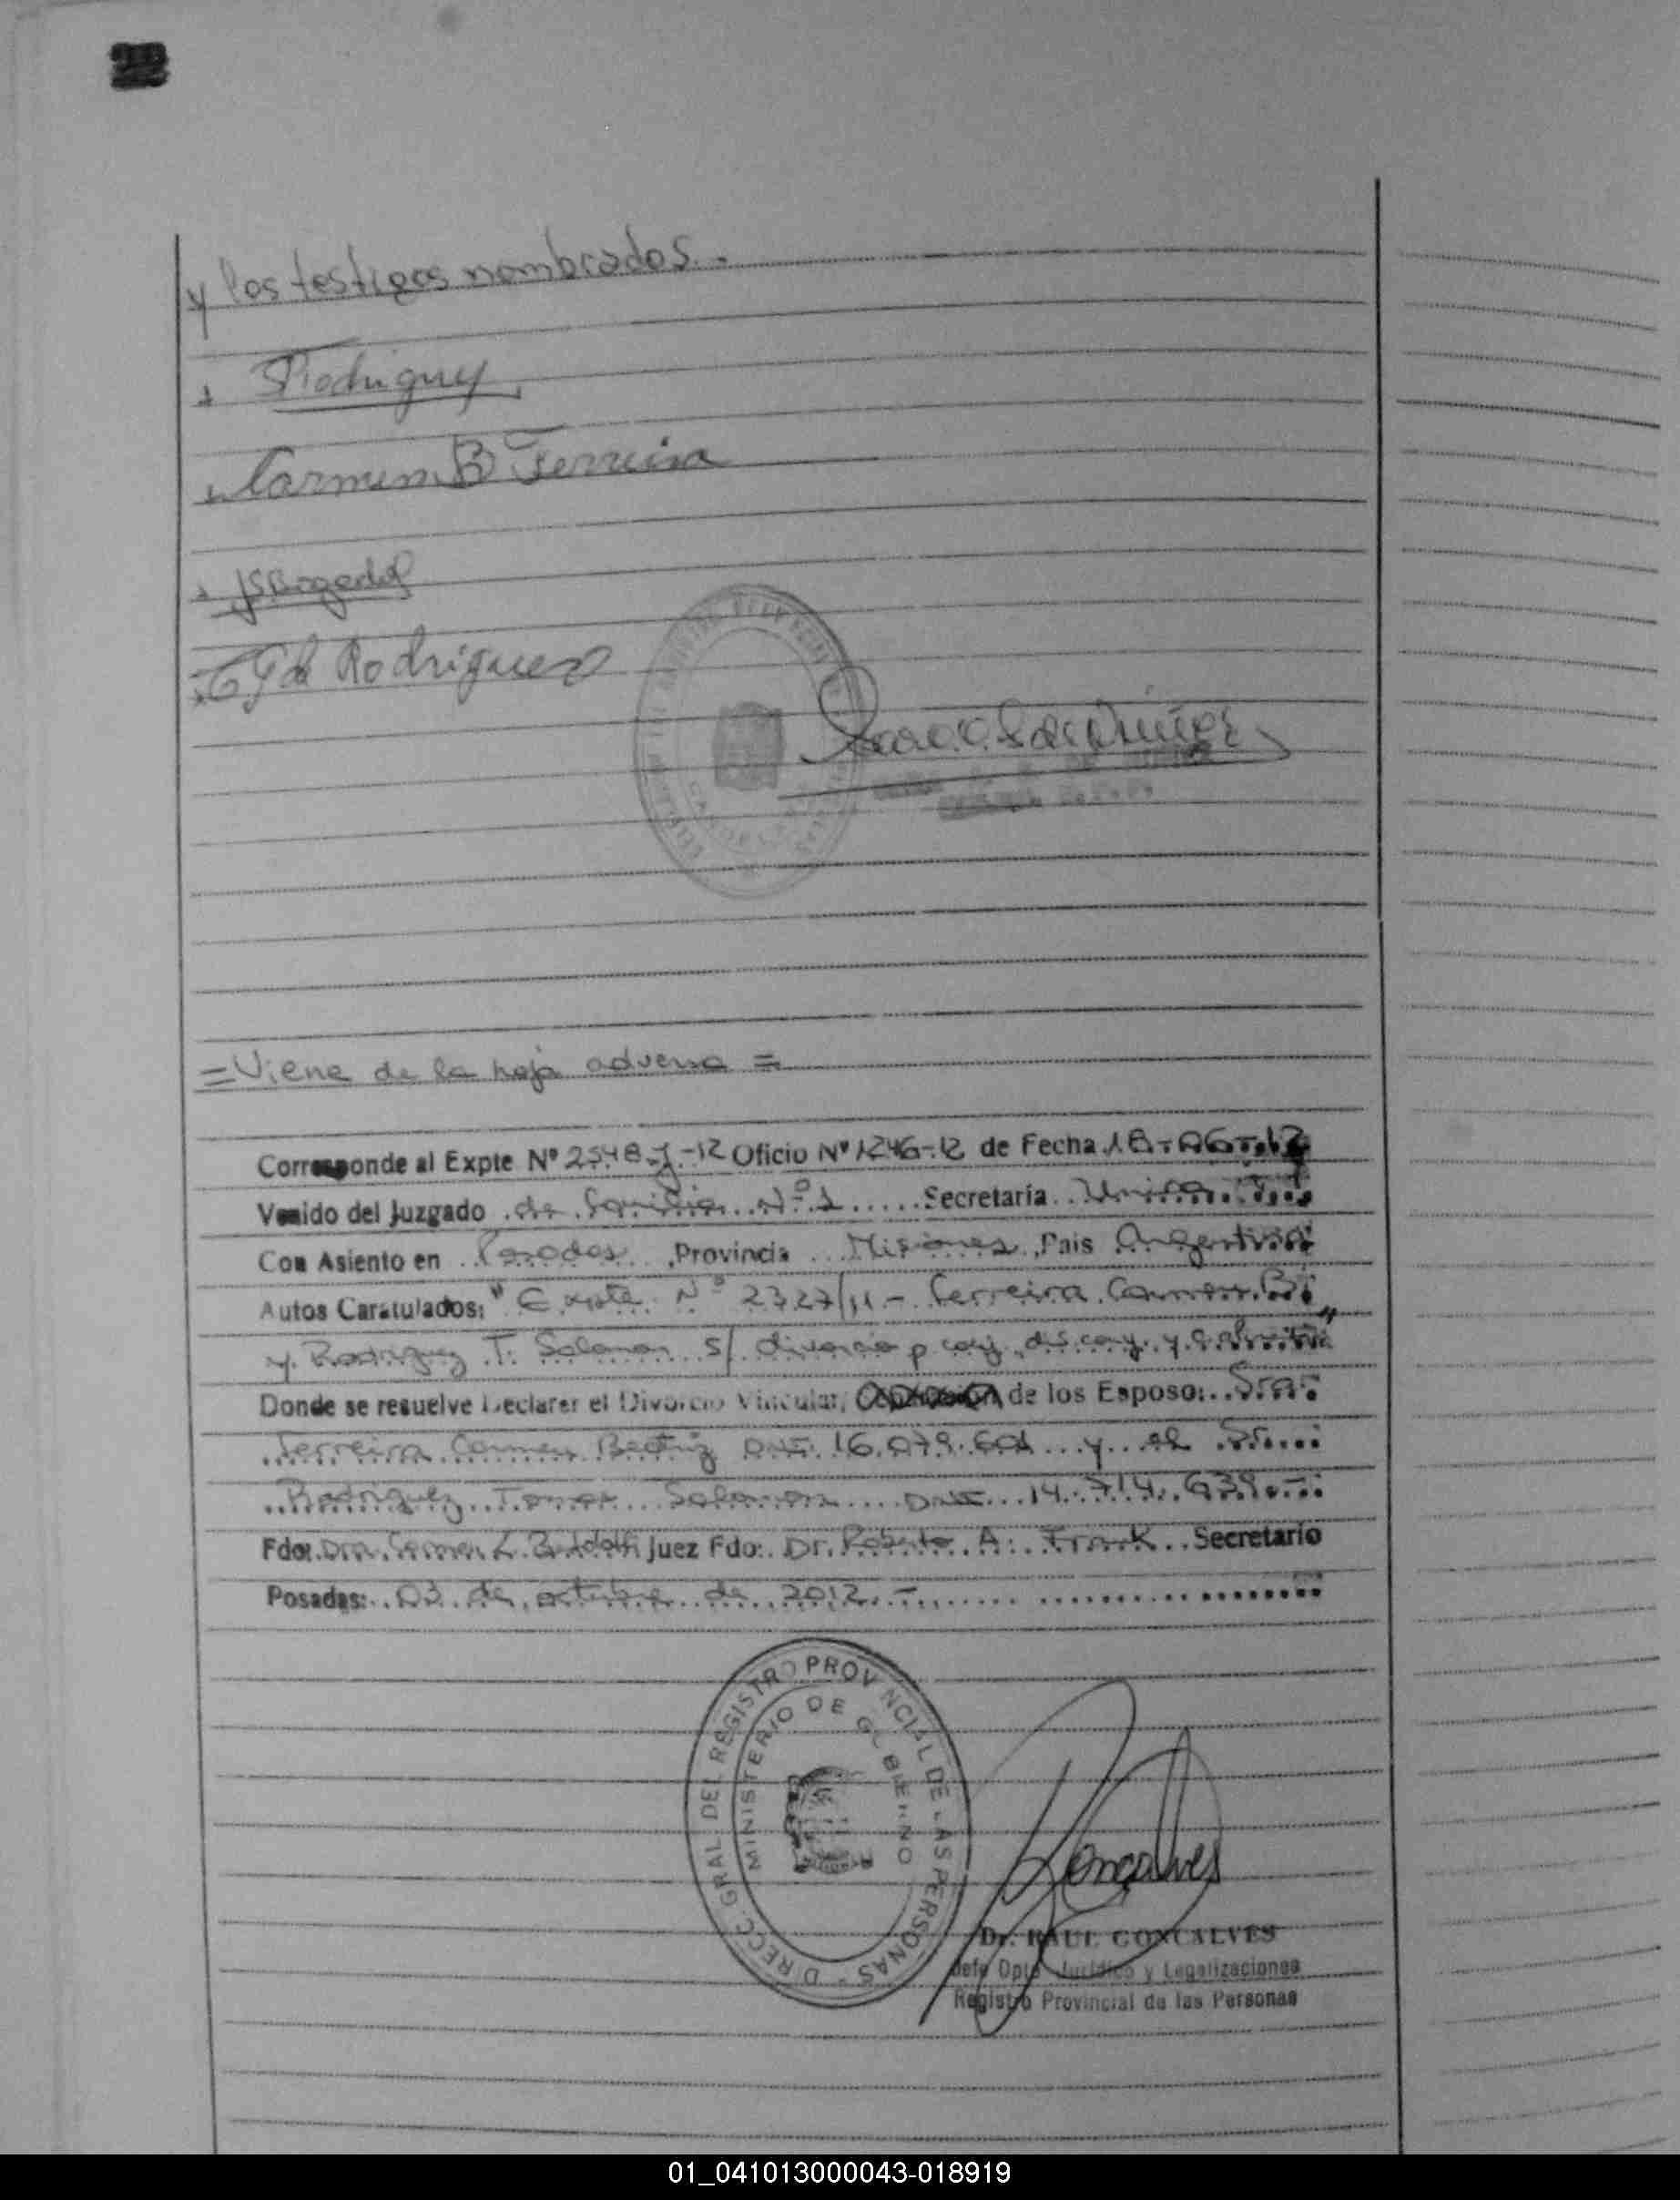 y los testigos nombrados.
Rodriguez
Carmen B Ferreira
Rodriguez
= Viene de la hoja adversa =
Corresponde al Expte Nº 2548-J-12 Oficio Nº 1246-12 de Fecha 18-06-12
Venido del Juzgado de Familia Nº 1 Secretaría Unica
Con Asiento en Posadas Provincia Misiones Pais Argentina
Autos Caratulados: "Expte. Nº 2327/11 - Ferreira Carmen B.
y Rodriguez T. Solomon s/ divorcio p conj. dis. cony. y
Donde se resuelve Declarar el Divorcio Vincular, de los Esposo: Sra.
Ferreira Carmen Beatriz DNI. 16.079.601 y el Sr.
Rodriguez Tomas Solomon DNI 14.714.639.-
Fdo: Dra. Carmen L. Juez Fdo: Dr. Roberto A. Frank Secretario
Posadas: 03 de octubre de 2012.-
DIRECC. GRAL. DEL REGISTRO PROVINCIAL DE LAS PERSONAS -
MINISTERIO DE GOBIERNO
Goncalves
Dr. RAUL GONCALVES
Jefe Dpto. Jurídico y Legalizaciones
Registro Provincial de las Personas
01_041013000043-018919